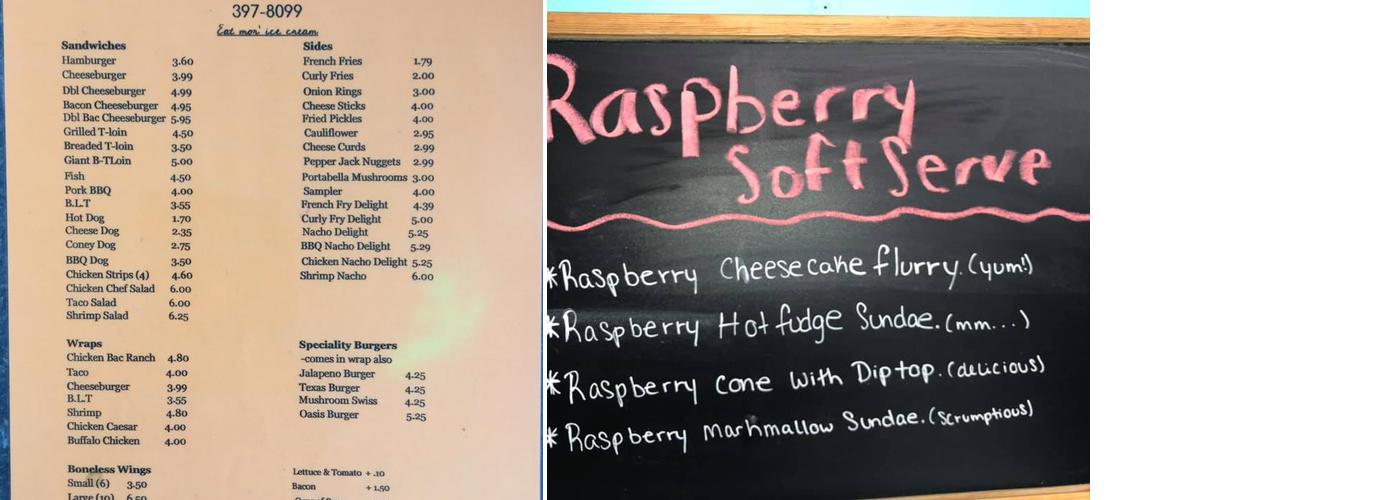 397-8099
Eat mor' ice cream
Sandwiches
Hamburger 3.60
Cheeseburger 3.99
Dbl Cheeseburger 4.99
Bacon Cheeseburger 4.95
Dbl Bac Cheeseburger 5.95
Grilled T-loin 4.50
Breaded T-loin 3.50
Giant B-TLoin 5.00
Fish 4.50
Pork BBQ 4.00
B.L.T 3.55
Hot Dog 1.70
Cheese Dog 2.35
Coney Dog 2.75
BBQ Dog 3.50
Chicken Strips (4) 4.60
Chicken Chef Salad 6.00
Taco Salad 6.00
Shrimp Salad 6.25
Wraps
Chicken Bac Ranch 4.80
Taco 4.00
Cheeseburger 3.99
B.L.T 3.55
Shrimp 4.80
Chicken Caesar 4.00
Buffalo Chicken 4.00
Boneless Wings
Small (6) 3.50
Large (10) 6.50
Sides
French Fries 1.79
Curly Fries 2.00
Onion Rings 3.00
Cheese Sticks 4.00
Fried Pickles 4.00
Cauliflower 2.95
Cheese Curds 2.99
Pepper Jack Nuggets 2.99
Portabella Mushrooms 3.00
Sampler 4.00
French Fry Delight 4.39
Curly Fry Delight 5.00
Nacho Delight 5.25
BBQ Nacho Delight 5.29
Chicken Nacho Delight 5.25
Shrimp Nacho 6.00
Speciality Burgers
-comes in wrap also
Jalapeno Burger 4.25
Texas Burger 4.25
Mushroom Swiss 4.25
Oasis Burger 5.25
Lettuce & Tomato + .10
Bacon + 1.50
Raspberry
Soft Serve
*Raspberry Cheesecake flurry. (yum!)
*Raspberry Hot fudge Sundae. (mm...)
*Raspberry Cone With Diptop. (delicious)
*Raspberry Marhmallow Sundae. (Scrumptious)